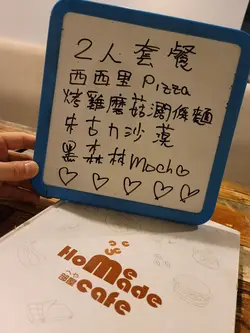 2人套餐
西西里 Pizza
烤雞磨菇濶條麵
朱古力沙漠
黑森林Mocha
Home
Made
Cafe